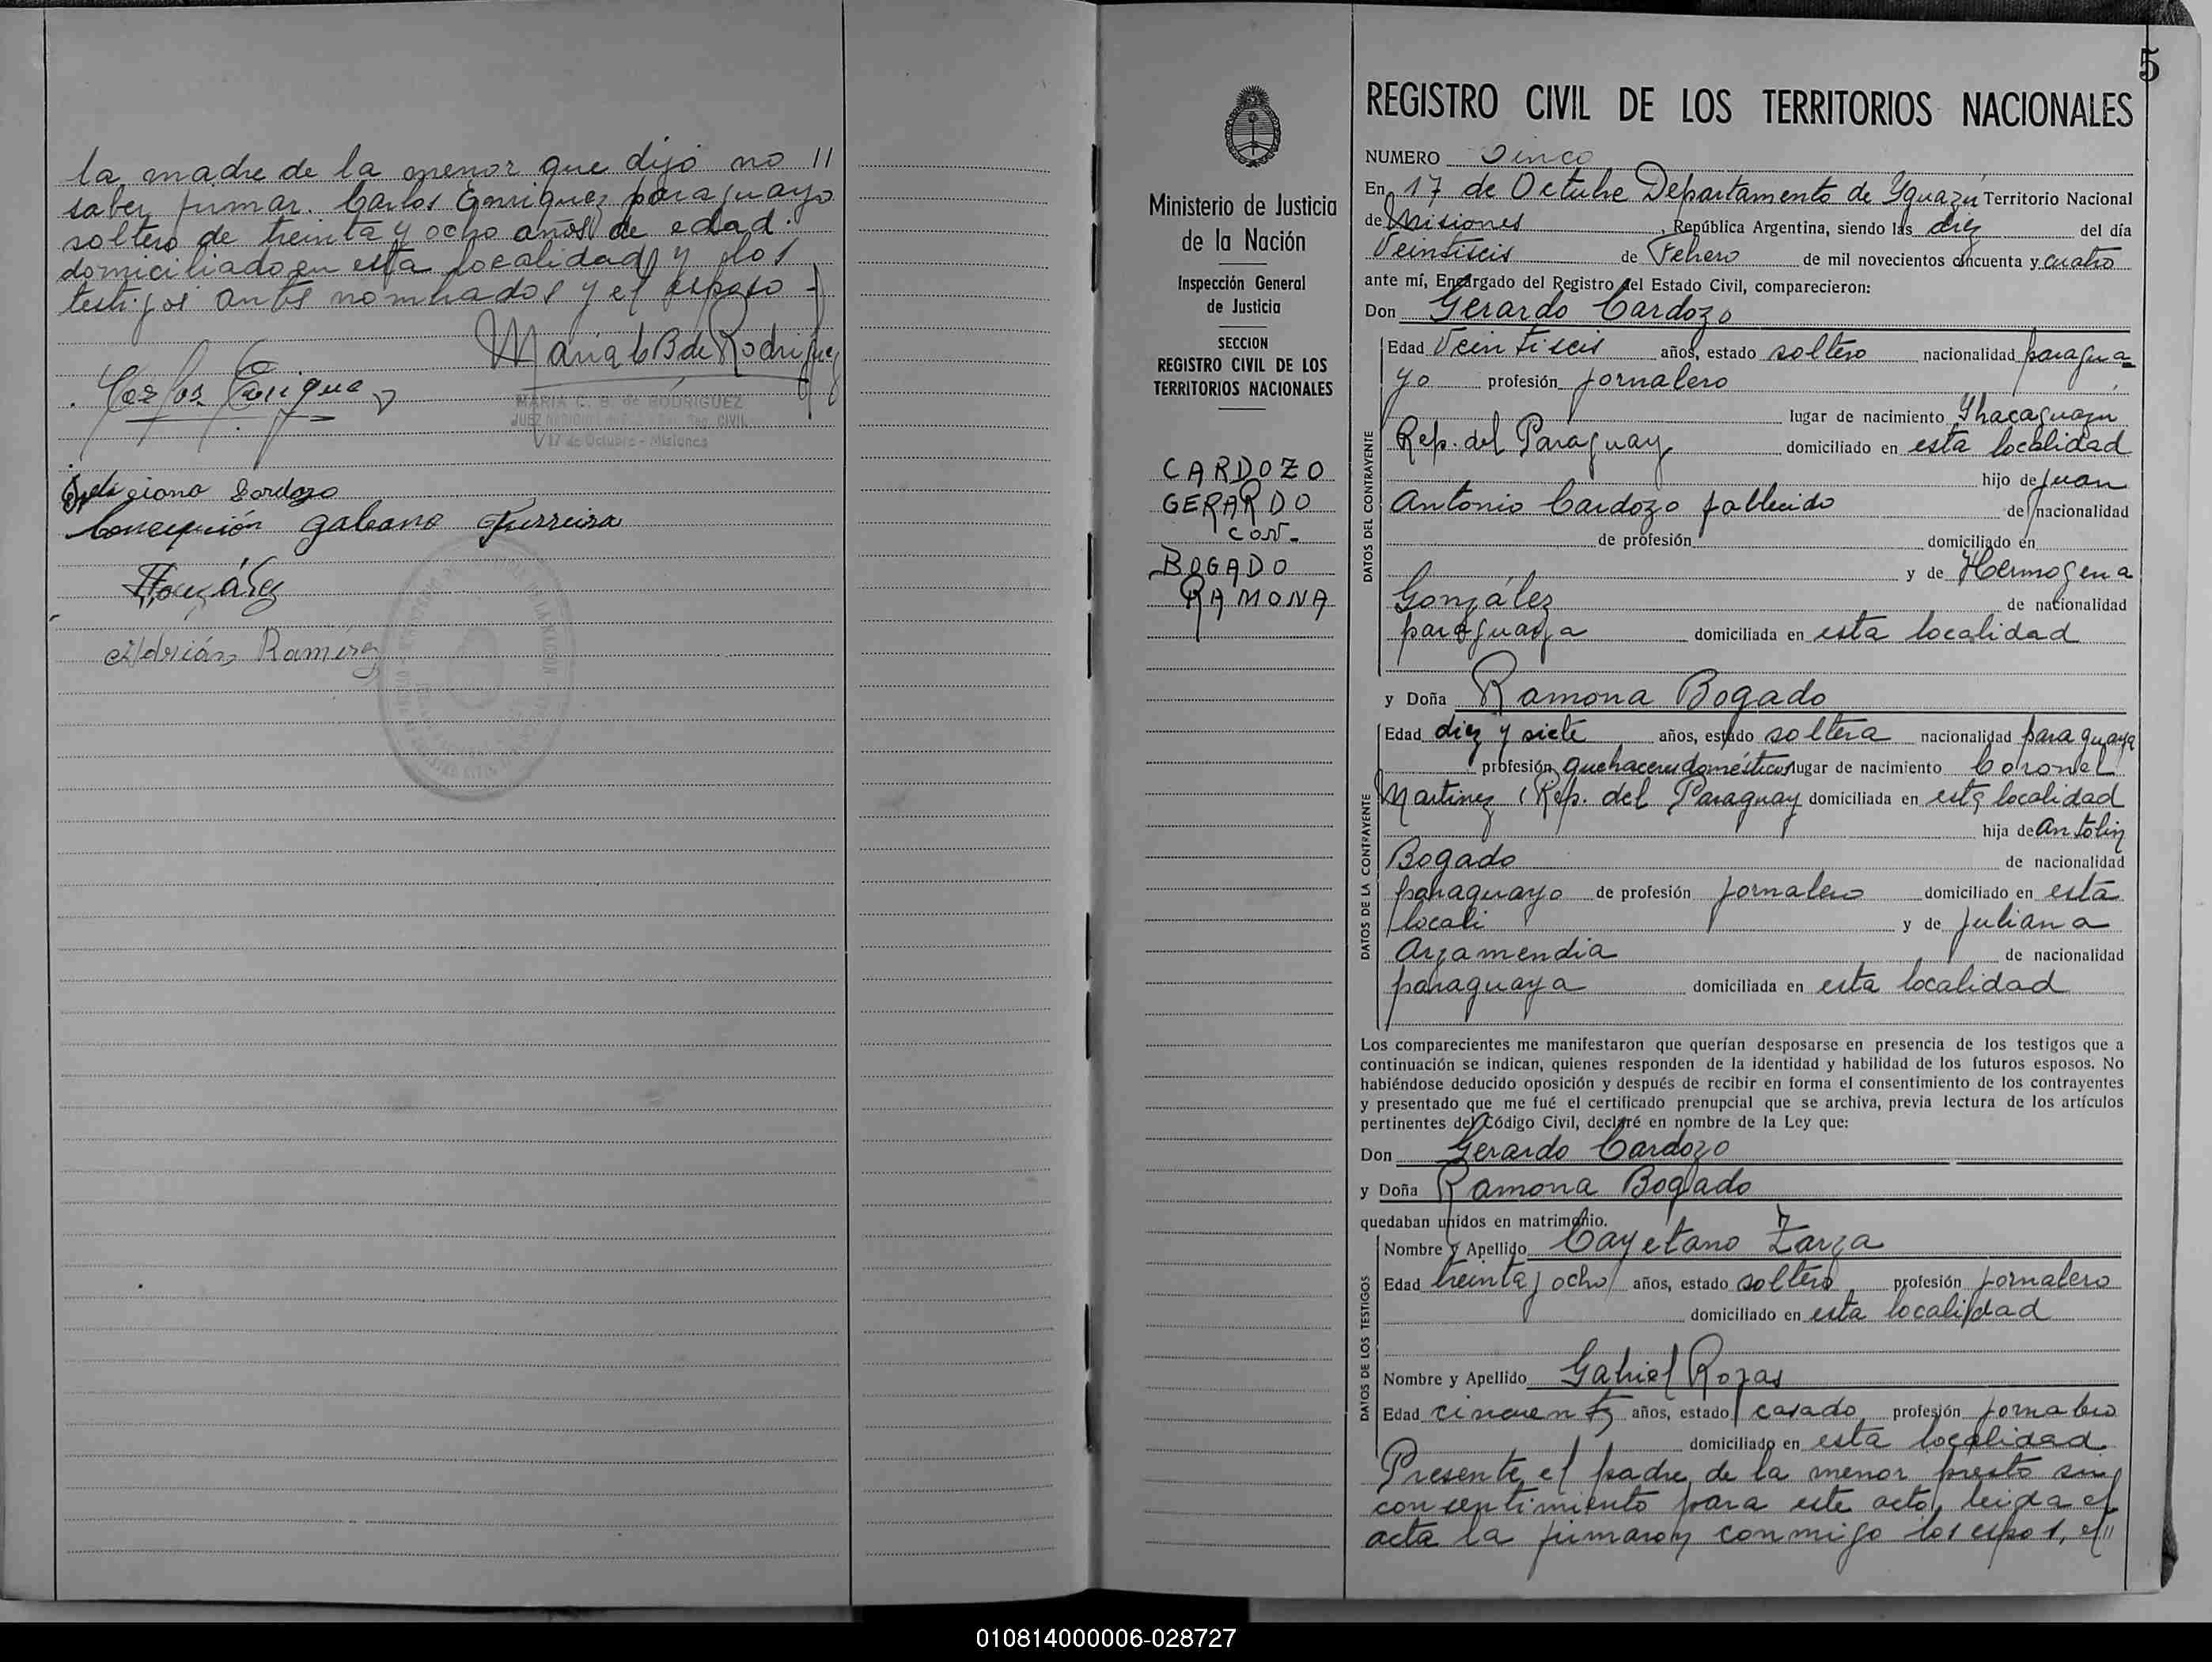 la madre de la menor que dijo no //
saber firmar. Carlos Enriquez paraguayo
soltero de treinta y ocho años de edad.
domiciliado en esta localidad y los
testigos antes nombrados y el esposo
Maria C B de Rodriguez
Carlos Enrique
MARIA C. B. de RODRIGUEZ
17 de Octubre - Misiones
Cardozo
Concepción Galeano Ferreira
González
Adrián Ramirez
5
Ministerio de Justicia
de la Nación
Inspección General
de Justicia
SECCION
REGISTRO CIVIL DE LOS
TERRITORIOS NACIONALES
CARDOZO
GERARDO
CON-
BOGADO
RAMONA
REGISTRO CIVIL DE LOS TERRITORIOS NACIONALES
NUMERO Cinco
En 17 de Octubre Departamento de Yguazú Territorio Nacional
de Misiones, República Argentina, siendo las diez del día
Veintiseis de Febrero de mil novecientos cincuenta y cuatro
ante mí, Encargado del Registro del Estado Civil, comparecieron:
Don Gerardo Cardozo
DATOS DEL CONTRAYENTE
Edad Veintiseis años, estado soltero nacionalidad paragua-
yo profesión jornalero
lugar de nacimiento Yhacaguazu
Rep. del Paraguay domiciliado en esta localidad
hijo de Juan
Antonio Cardozo fallecido de nacionalidad
de profesión domiciliado en
y de Hermogena
González de nacionalidad
paraguaya domiciliada en esta localidad
y Doña Ramona Bogado
DATOS DE LA CONTRAYENTE
Edad diez y siete años, estado soltera nacionalidad paraguaya
profesión quehaceres domésticos lugar de nacimiento Coronel
Martinez (Rep. del Paraguay domiciliada en esta localidad
hija de Antolin
Bogado de nacionalidad
paraguayo de profesión jornalero domiciliado en esta
locali y de Juliana
Arzamendia de nacionalidad
paraguaya domiciliada en esta localidad
Los comparecientes me manifestaron que querían desposarse en presencia de los testigos que a
continuación se indican, quienes responden de la identidad y habilidad de los futuros esposos. No
habiéndose deducido oposición y después de recibir en forma el consentimiento de los contrayentes
y presentado que me fué el certificado prenupcial que se archiva, previa lectura de los artículos
pertinentes del Código Civil, declaré en nombre de la Ley que:
Don Gerardo Cardozo
y Doña Ramona Bogado
quedaban unidos en matrimonio.
DATOS DE LOS TESTIGOS
Nombre y Apellido Cayetano Zarza
Edad treinta y ocho años, estado soltero profesión jornalero
domiciliado en esta localidad
Nombre y Apellido Gabriel Rojas
Edad cincuenta años, estado casado profesión jornalero
domiciliado en esta localidad
Presente el padre de la menor presto su
consentimiento para este acto, leida el
acta la firmaron conmigo los espos, el //
010814000006-028727